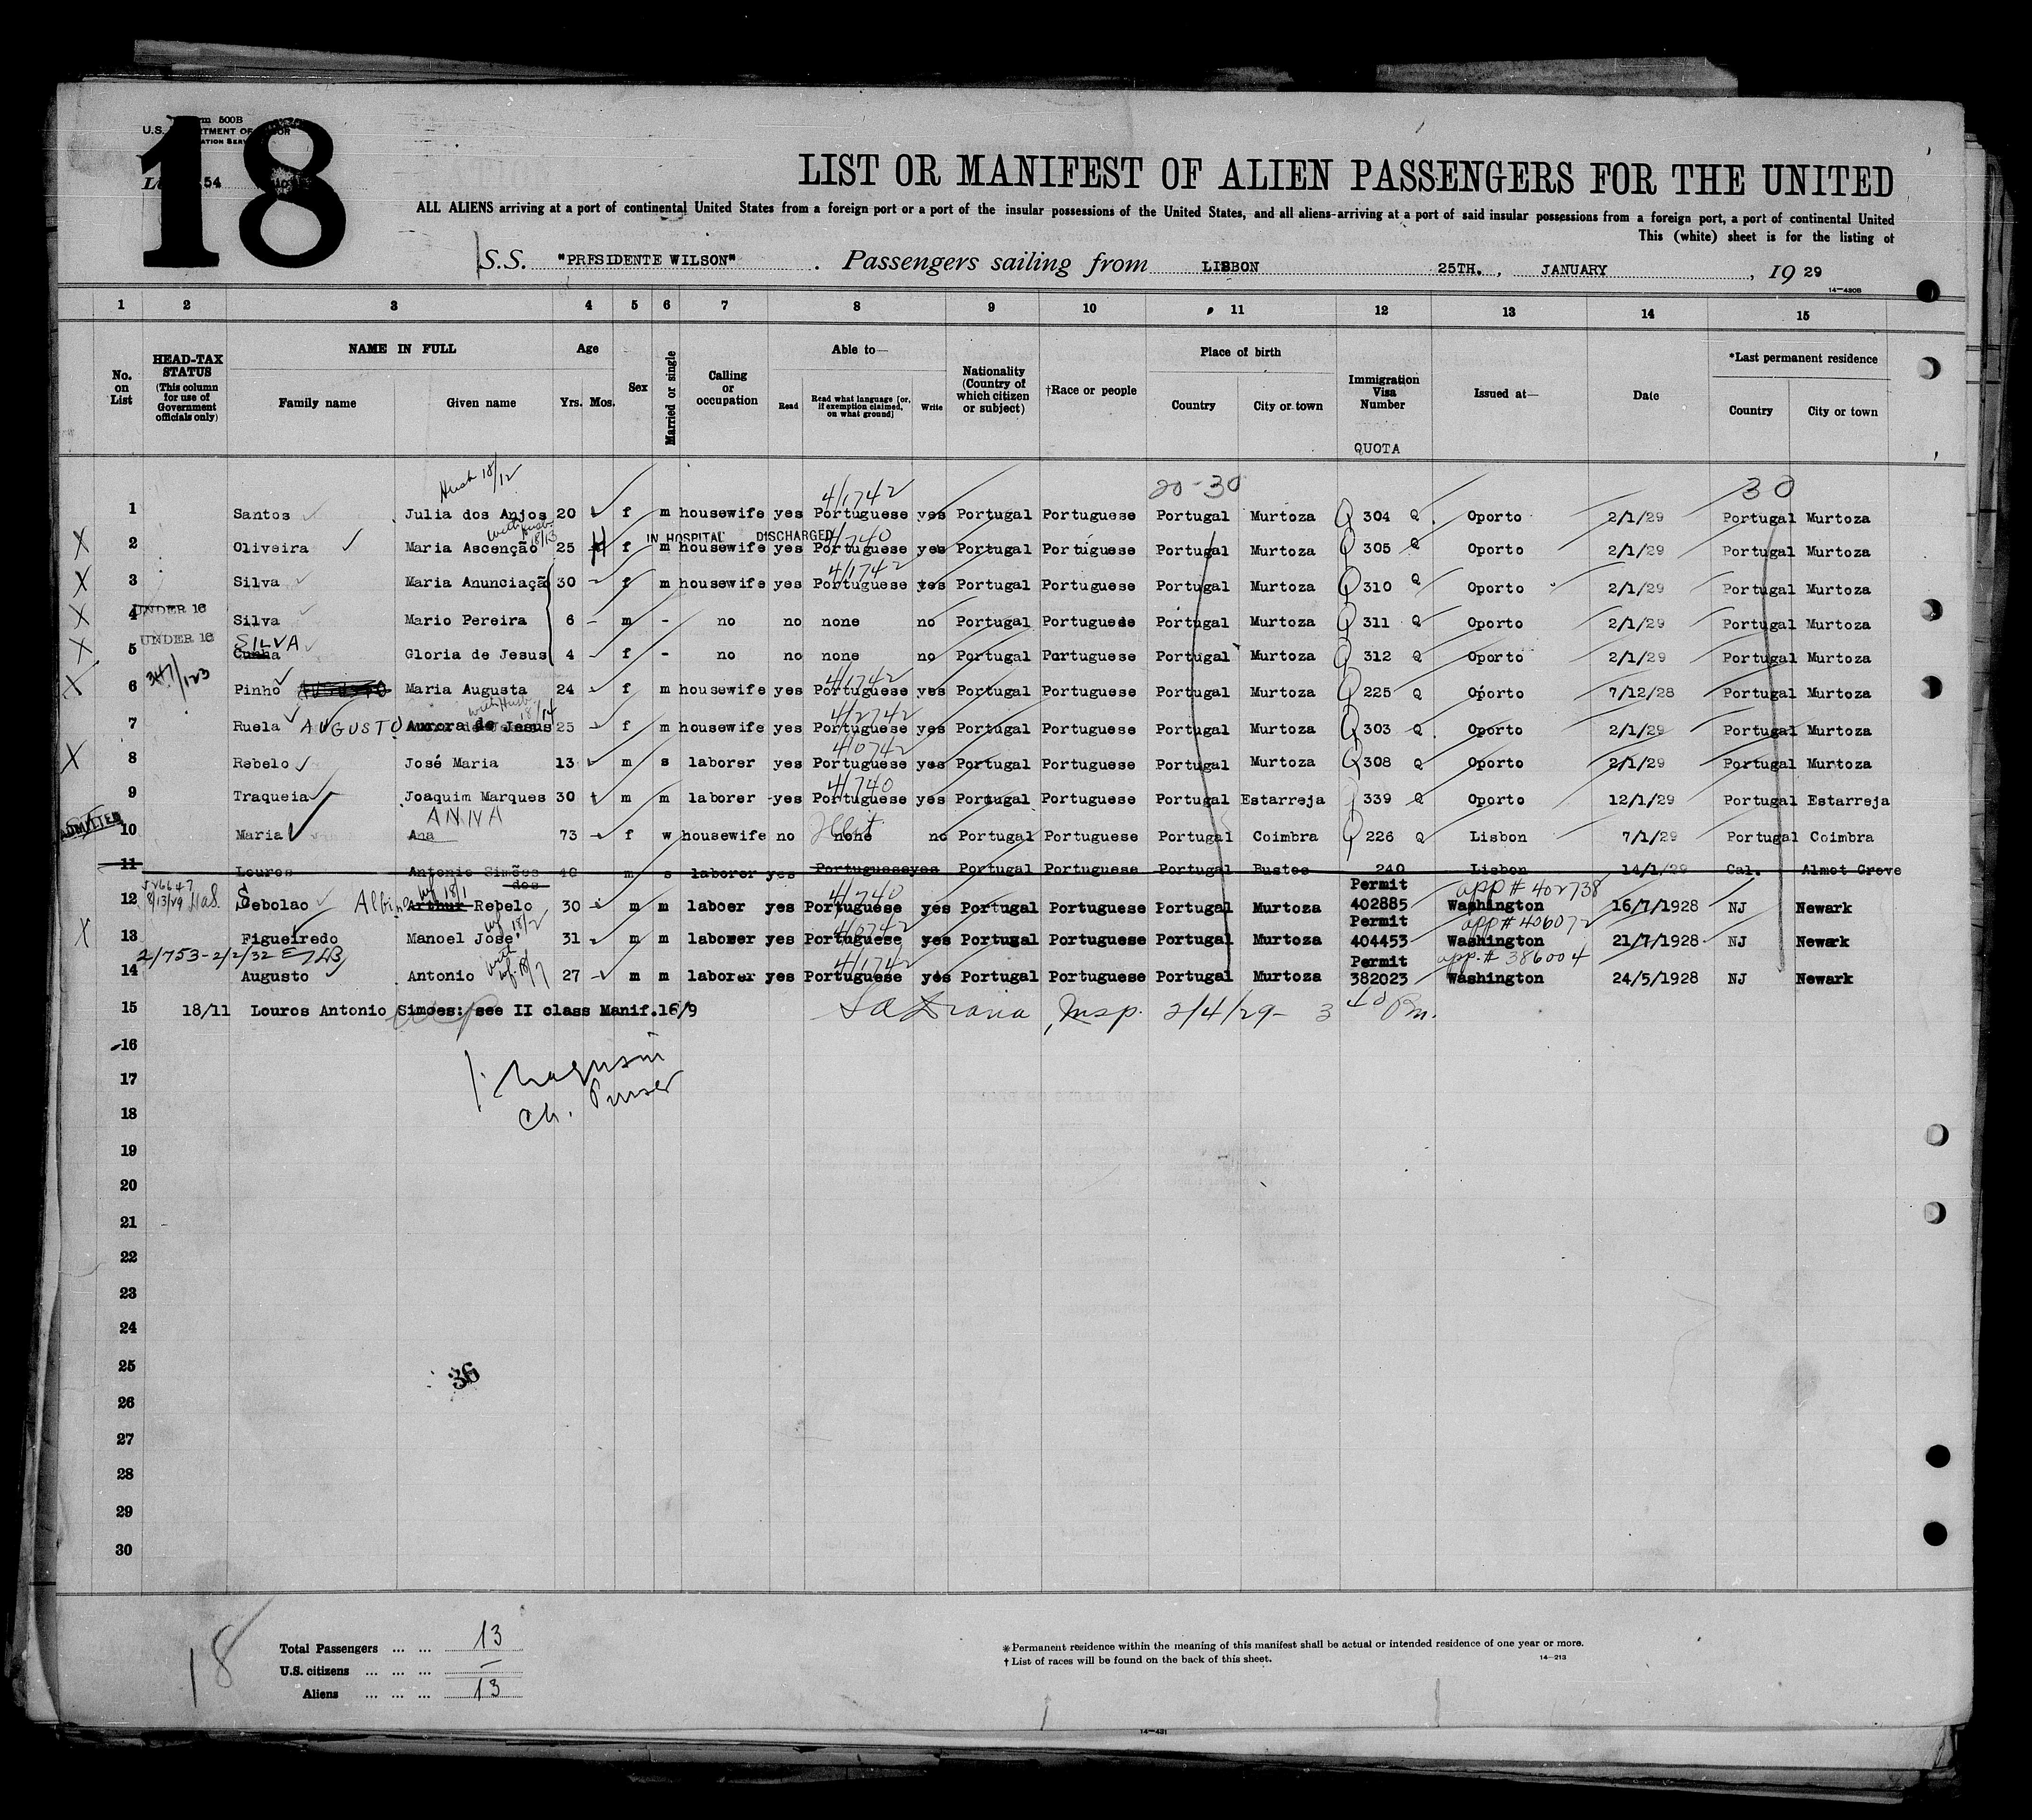 18
Form 500B
U.S. DEPARTMENT OF LABOR
54
LIST OR MANIFEST OF ALIEN PASSENGERS FOR THE UNITED
ALL ALIENS arriving at a port of continental United States from a foreign port or a port of the insular possessions of the United States, and all aliens arriving at a port of said insular possessions from a foreign port, a port of continental United
This (white) sheet is for the listing of
S.S. "PRESIDENTE WILSON" . Passengers sailing from LISBON 25TH. , JANUARY , 19 29
14—430B
1 2 3 4 5 6 7 8 9 10 11 12 13 14 15
No. on List
HEAD-TAX STATUS (This column for use of Government officials only)
NAME IN FULL Family name Given name
Age Yrs. Mos.
Sex
Married or single
Calling or occupation
Able to— Read Read what language [or, if exemption claimed, on what ground] Write
Nationality (Country of which citizen or subject)
†Race or people
Place of birth Country City or town
Immigration Visa Number QUOTA
Issued at—
Date
*Last permanent residence Country City or town
Husb 18/12 4/1742 20-30 30
1 Santos Julia dos Anjos 20 f m housewife yes Portuguese yes Portugal Portuguese Portugal Murtoza Q 304 Q Oporto 2/1/29 Portugal Murtoza
with Husb. 18/13 IN HOSPITAL DISCHARGED 4/740
X 2 Oliveira Maria Ascenção 25 f m housewife yes Portuguese yes Portugal Portuguese Portugal Murtoza Q 305 Q Oporto 2/1/29 Portugal Murtoza
4/1742
X 3 Silva Maria Anunciação 30 f m housewife yes Portuguese yes Portugal Portuguese Portugal Murtoza Q 310 Q Oporto 2/1/29 Portugal Murtoza
X UNDER 16 4 Silva Mario Pereira 6 - m - no no none no Portugal Portuguese Portugal Murtoza Q 311 Q Oporto 2/1/29 Portugal Murtoza
UNDER 16 SILVA
X 5 Cunha Gloria de Jesus 4 f - no no none no Portugal Portuguese Portugal Murtoza Q 312 Q Oporto 2/1/29 Portugal Murtoza
347/123 4/1742
X 6 Pinho Maria Augusta 24 f m housewife yes Portuguese yes Portugal Portuguese Portugal Murtoza Q 225 Q Oporto 7/12/28 Portugal Murtoza
with Husb. 18/14 4/2742
7 Ruela AUGUSTO Aurora de Jesus 25 f m housewife yes Portuguese yes Portugal Portuguese Portugal Murtoza Q 303 Q Oporto 2/1/29 Portugal Murtoza
4/0742
X 8 Rebelo José Maria 13 m s laborer yes Portuguese yes Portugal Portuguese Portugal Murtoza Q 308 Q Oporto 2/1/29 Portugal Murtoza
4/740
9 Traqueia Joaquim Marques 30 m m laborer yes Portuguese yes Portugal Portuguese Portugal Estarreja 339 Q Oporto 12/1/29 Portugal Estarreja
ADMITTED ANNA
10 Maria Ana 73 f w housewife no none no Portugal Portuguese Portugal Coimbra Q 226 Q Lisbon 7/1/29 Portugal Coimbra
11 Louros Antonio Simões dos 40 m s laborer yes Portuguese yes Portugal Portuguese Portugal Bustos 240 Lisbon 14/1/29 Cal. Almot Grove
8/13/29 wf 18/1 4/740 Permit app # 402738
12 Sebolao Albino Arthur Rebelo 30 m m laboer yes Portuguese yes Portugal Portuguese Portugal Murtoza 402885 Washington 16/7/1928 NJ Newark
wf 18/2 Permit app # 406072
X 13 Figueiredo Manoel José 31 m m laborer yes Portuguese yes Portugal Portuguese Portugal Murtoza 404453 Washington 21/7/1928 NJ Newark
2/753-2/2/32 with wf. 18/7 4/1742 Permit app. # 386004
14 Augusto Antonio 27 m m laborer yes Portuguese yes Portugal Portuguese Portugal Murtoza 382023 Washington 24/5/1928 NJ Newark
15 18/11 Louros Antonio Simoes: see II class Manif.16/9 Insp. 2/4/29- 3 40 Pm.
16
17
Ch. Purser
18
19
20
21
22
23
24
25
36
26
27
28
29
30
18
Total Passengers ... ... 13
U.S. citizens ... ... ... —
Aliens ... ... ... 13
* Permanent residence within the meaning of this manifest shall be actual or intended residence of one year or more.
† List of races will be found on the back of this sheet.
14—213
14—431